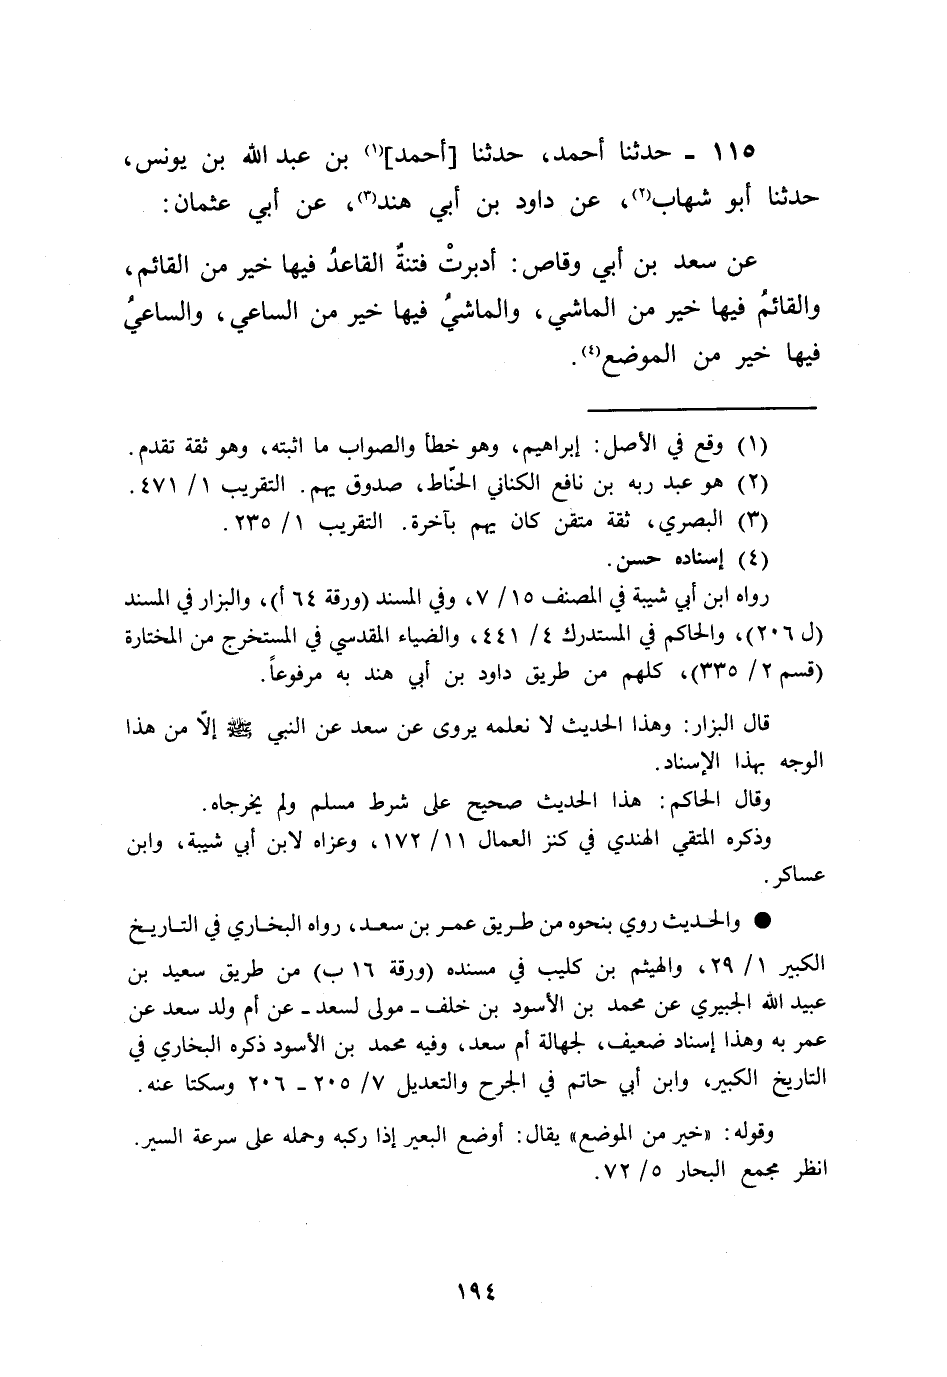 ١١٥ - حدثنا أحمد، حدثنا [أحمد](١) بن عبد الله بن يونس،
حدثنا أبو شهاب(٢)، عن داود بن أبي هند(٣)، عن أبي عثمان:
عن سعد بن أبي وقاص: أدبرتْ فتنةٌ القاعدُ فيها خير من القائم،
والقائمُ فيها خير من الماشي، والماشيُ فيها خير من الساعي، والساعيُ
فيها خير من الموضع(٤).
(١) وقع في الأصل: إبراهيم، وهو خطأ والصواب ما اثبته، وهو ثقة تقدم.
(٢) هو عبد ربه بن نافع الكناني الحنّاط، صدوق يهم. التقريب ١/ ٤٧١.
(٣) البصري، ثقة متقن كان يهم بآخرة. التقريب ١/ ٢٣٥.
(٤) إسناده حسن.
رواه ابن أبي شيبة في المصنف ١٥/ ٧، وفي المسند (ورقة ٦٤ أ)، والبزار في المسند
(ل ٢٠٦)، والحاكم في المستدرك ٤/ ٤٤١، والضياء المقدسي في المستخرج من المختارة
(قسم ٢/ ٣٣٥)، كلهم من طريق داود بن أبي هند به مرفوعاً.
قال البزار: وهذا الحديث لا نعلمه يروى عن سعد عن النبي ﷺ إلّا من هذا
الوجه بهذا الإسناد.
وقال الحاكم: هذا الحديث صحيح على شرط مسلم ولم يخرجاه.
وذكره المتقي الهندي في كنز العمال ١١/ ١٧٢، وعزاه لابن أبي شيبة، وابن
عساكر.
● والحديث روي بنحوه من طريق عمر بن سعد، رواه البخاري في التاريخ
الكبير ١/ ٢٩، والهيثم بن كليب في مسنده (ورقة ١٦ ب) من طريق سعيد بن
عبيد الله الجبيري عن محمد بن الأسود بن خلف - مولى لسعد - عن أم ولد سعد عن
عمر به وهذا إسناد ضعيف، لجهالة أم سعد، وفيه محمد بن الأسود ذكره البخاري في
التاريخ الكبير، وابن أبي حاتم في الجرح والتعديل ٧/ ٢٠٥ - ٢٠٦ وسكتا عنه.
وقوله: «خير من الموضع» يقال: أوضع البعير إذا ركبه وحمله على سرعة السير.
انظر مجمع البحار ٥/ ٧٢.
١٩٤